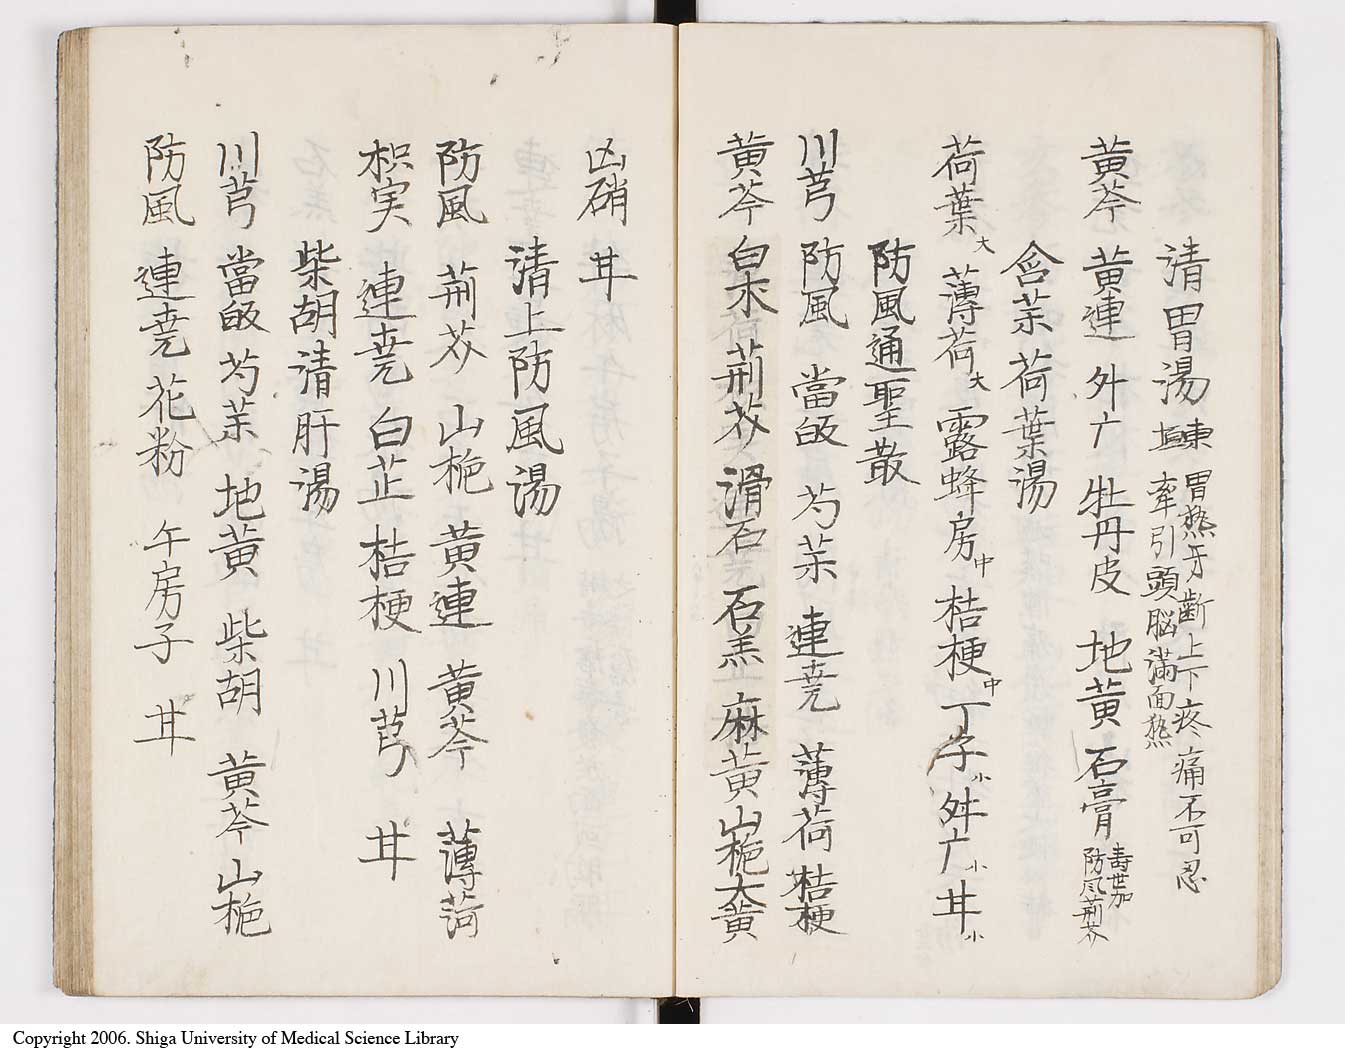 清胃湯 胃熱牙齗上下疼痛不可忍
牽引頭脳滿面熱
黄芩 黄連 外广 牡丹皮 地黄 石膏 壽世加
防風荊芥
含茱荷葉湯
荷葉大 薄荷大 露蜂房中 桔梗中 丁子小 舛广小 甘小
防風通聖散
川芎 防風 當皈 芍茱 連尭 薄荷 桔梗
黄芩 白朮 荊芥 滑石 石羔 麻黄 山梔 大黄
凶硝 甘
清上防風湯
防風 荊芥 山梔 黄連 黄芩 薄荷
枳実 連尭 白芷 桔梗 川芎 甘
柴胡清肝湯
川芎 當皈 芍茱 地黄 柴胡 黄芩 山梔
防風 連尭 花粉 午房子 甘
Copyright 2006. Shiga University of Medical Science Library